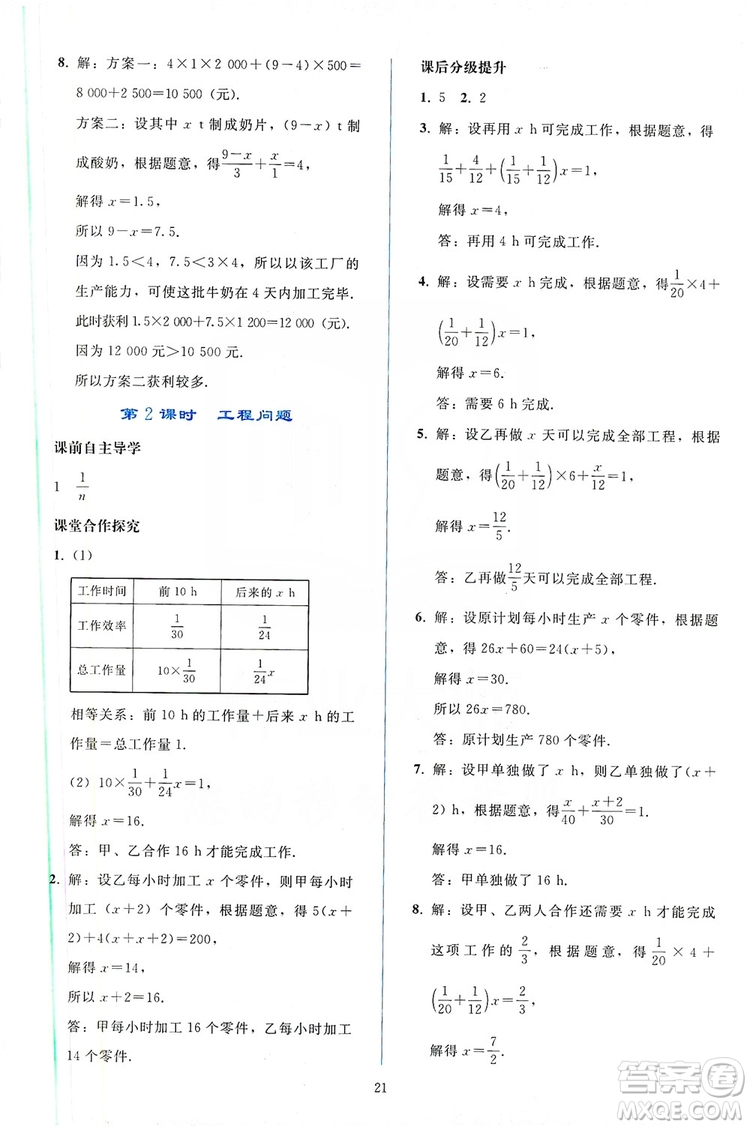 8. 解：方案一：4×1×2 000+(9−4)×500=
8 000+2 500=10 500 (元).
方案二：设其中 x t 制成奶片，(9−x) t 制
成酸奶，根据题意，得 (9−x)/3 + x/1 = 4,
解得 x=1.5,
所以 9−x=7.5.
因为 1.5<4，7.5<3×4，所以以该工厂的
生产能力，可使这批牛奶在 4 天内加工完毕.
此时获利 1.5×2 000+7.5×1 200=12 000 (元).
因为 12 000元>10 500 元.
所以方案二获利较多.
第 2 课时　工程问题
课前自主导学
1　1/n
课堂合作探究
1. (1)
工作时间　前 10 h　后来的 x h
工作效率　1/30　1/24
总工作量　10×1/30　1/24 x
相等关系：前 10 h 的工作量+后来 x h 的工
作量=总工作量 1.
(2) 10×1/30+1/24 x=1,
解得 x=16.
答：甲、乙合作 16 h 才能完成工作.
2. 解：设乙每小时加工 x 个零件，则甲每小时
加工 (x+2) 个零件，根据题意，得 5(x+
2)+4(x+2+x)=200,
解得 x=14,
所以 x+2=16.
答：甲每小时加工 16 个零件，乙每小时加工
14 个零件.
课后分级提升
1. 5　2. 2
3. 解：设再用 x h 可完成工作，根据题意，得
1/15+4/12+(1/15+1/12)x=1,
解得 x=4,
答：再用 4 h 可完成工作.
4. 解：设需要 x h 完成，根据题意，得 1/20×4+
(1/20+1/12)x=1,
解得 x=6.
答：需要 6 h 完成.
5. 解：设乙再做 x 天可以完成全部工程，根据
题意，得 (1/20+1/12)×6+x/12=1,
解得 x=12/5.
答：乙再做 12/5 天可以完成全部工程.
6. 解：设原计划每小时生产 x 个零件，根据题
意，得 26x+60=24(x+5),
解得 x=30.
所以 26x=780.
答：原计划生产 780 个零件.
7. 解：设甲单独做了 x h，则乙单独做了 (x+
2) h，根据题意，得 x/40+(x+2)/30=1,
解得 x=16.
答：甲单独做了 16 h.
8. 解：设甲、乙两人合作还需要 x h 才能完成
这项工作的 2/3，根据题意，得 1/20×4+
(1/20+1/12)x=2/3,
解得 x=7/2.
21
答案圈
MXQE.COM